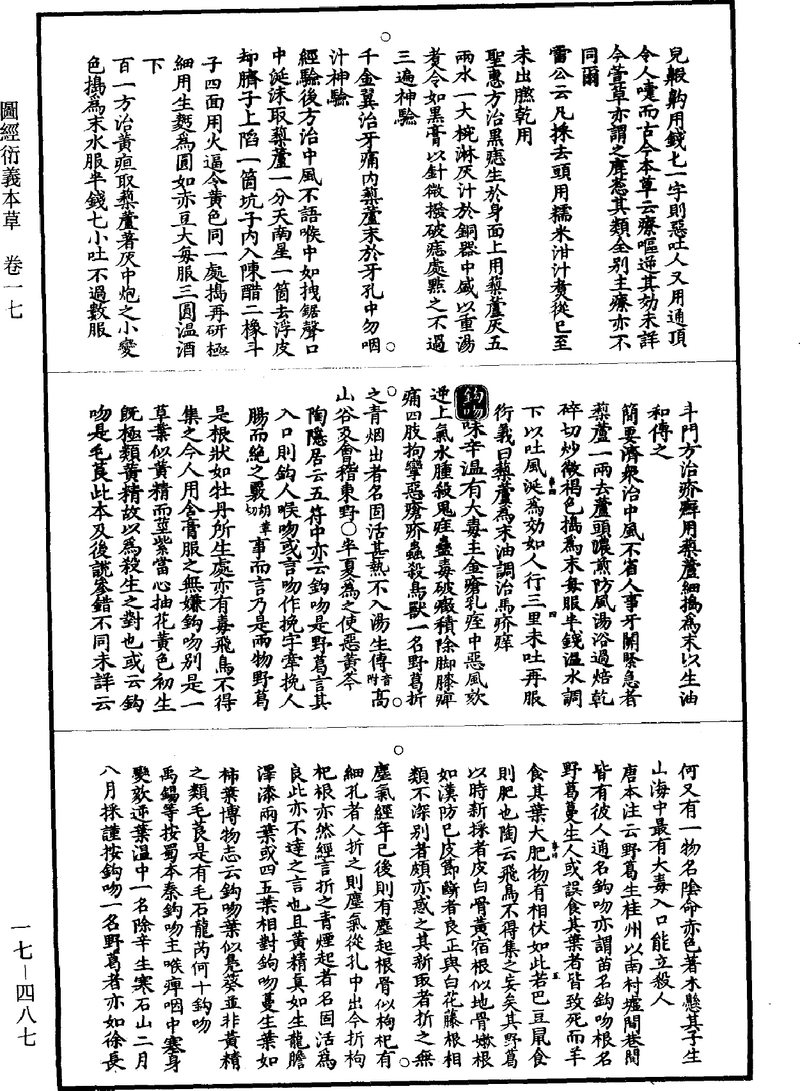 圖經衍義本草　卷一七
一七－四八七
兒齁䶎用錢匕一字則惡吐人又用通頂
令人嚏而古今本草云療嘔逆其効未詳
今萱草亦謂之鹿葱其類全別主療亦不
同爾
雷公云凡採去頭用糯米泔汁煮從巳至
未出䐿乾用
聖惠方治黑痣生於身面上用藜蘆灰五
兩水一大椀淋灰汁於銅器中盛以重湯
煮令如黑膏以針微撥破痣處點之不過
三遍神驗
千金翼治牙痛內藜蘆末於牙孔中勿咽
汁神驗
經驗後方治中風不語喉中如拽鋸聲口
中涎沫取藜蘆一分天南星一箇去浮皮
却臍子上陷一箇坑子內入陳醋二橡斗
子四面用火逼令黃色同一處搗再研極
細用生麪為圓如赤豆大每服三圓温酒
下
百一方治黃疸取藜蘆著灰中炮之小變
色搗為末水服半錢匕小吐不過數服
斗門方治疥癬用藜蘆細搗為末以生油
和傅之
簡要濟衆治中風不省人事牙關緊急者
藜蘆一兩去蘆頭濃煎防風湯浴過焙乾
碎切炒微褐色搗為末每服半錢温水調
下以吐風涎為効如人行三里未吐再服
衍義曰藜蘆為末油調治馬疥癬
鈎吻味辛温有大毒主金瘡乳痓中惡風欬
逆上氣水腫殺鬼疰蠱毒破癥積除脚膝痺
痛四肢拘攣惡瘡疥蟲殺鳥獸一名野葛折
之青烟出者名固活甚熱不入湯生傅音附高
山谷及會稽東野○半夏為之使惡黃芩
陶隱居云五符中亦云鈎吻是野葛言其
入口則鈎人喉吻或言吻作挽字牽挽人
腸而絕之覈胡革切事而言乃是兩物野葛
是根狀如牡丹所生處亦有毒飛鳥不得
集之今人用合膏服之無嫌鈎吻別是一
草葉似黃精而莖紫當心抽花黃色初生
既極類黃精故以為殺生之對也或云鈎
吻是毛茛此本及後說參錯不同未詳云
何又有一物名陰命赤色著木懸其子生
山海中最有大毒入口能立殺人
唐本注云野葛生桂州以南村墟閭巷間
皆有彼人通名鈎吻亦謂苗名鈎吻根名
野葛蔓生人或誤食其葉者皆致死而羊
食其葉大肥物有相伏如此若巴豆鼠食
則肥也陶云飛鳥不得集之妄矣其野葛
以時新採者皮白骨黃宿根似地骨嫩根
如漢防巳皮節斷者良正與白花藤根相
類不深別者頗亦惑之其新取者折之無
塵氣經年已後則有塵起根骨似枸杞有
細孔者人折之則塵氣從孔中出今折枸
杞根亦然經言折之青煙起者名固活為
良此亦不達之言也且黃精真如生龍膽
澤漆兩葉或四五葉相對鈎吻蔓生葉如
柿葉博物志云鈎吻葉似鳧葵並非黃精
之類毛茛是有毛石龍芮何干鈎吻
禹錫等按蜀本秦鈎吻主喉痺咽中塞身
變欬逆葉温中一名除辛生寒石山二月
八月採謹按鈎吻一名野葛者亦如徐長